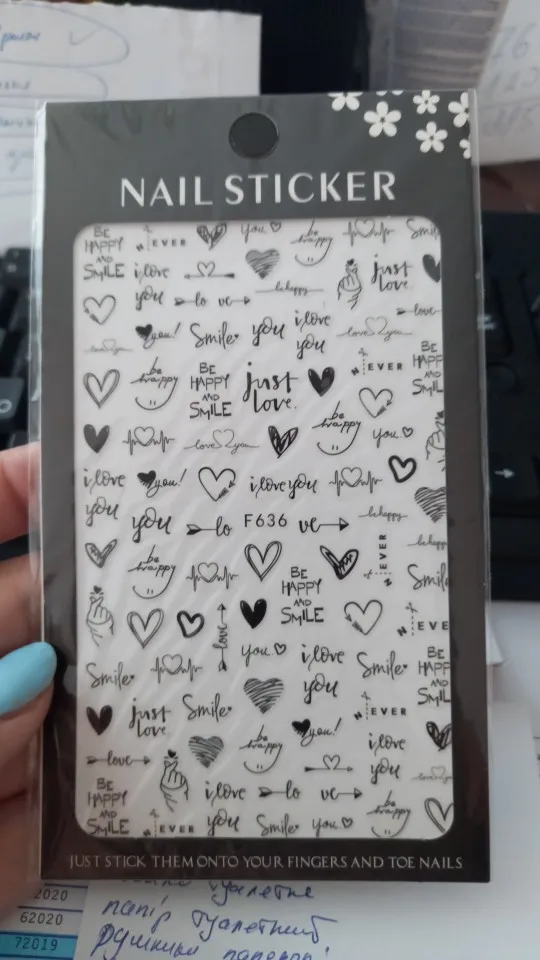 NAIL STICKER
BE HAPPY AND SMILE
EVER
you
be happy
Smil
i love you
just love
lo ve
be happy
love
you!
Smile
you
i love you
love you
N EVER
BE HAPP AND SMIL
be happy
BE HAPPY AND SMILE
just love.
be happy
you
love you
i love you
you!
i love you
be happy
you
lo
F636
ve
be happy
EVER
be happy
BE HAPPY AND SMILE
Smile
N EVE
love
you
i love you
Smile
BE HAPP AND SMIL
Smile
just love
Smile
N EVER
you!
be happy
i love you
love
BE HAPPY AND SMILE
N EVER
i love you
lo ve
Smile
you
be happy
JUST STICK THEM ONTO YOUR FINGERS AND TOE NAILS
2020
62020
72019
туалетне
папір туалетний
рушники паперові